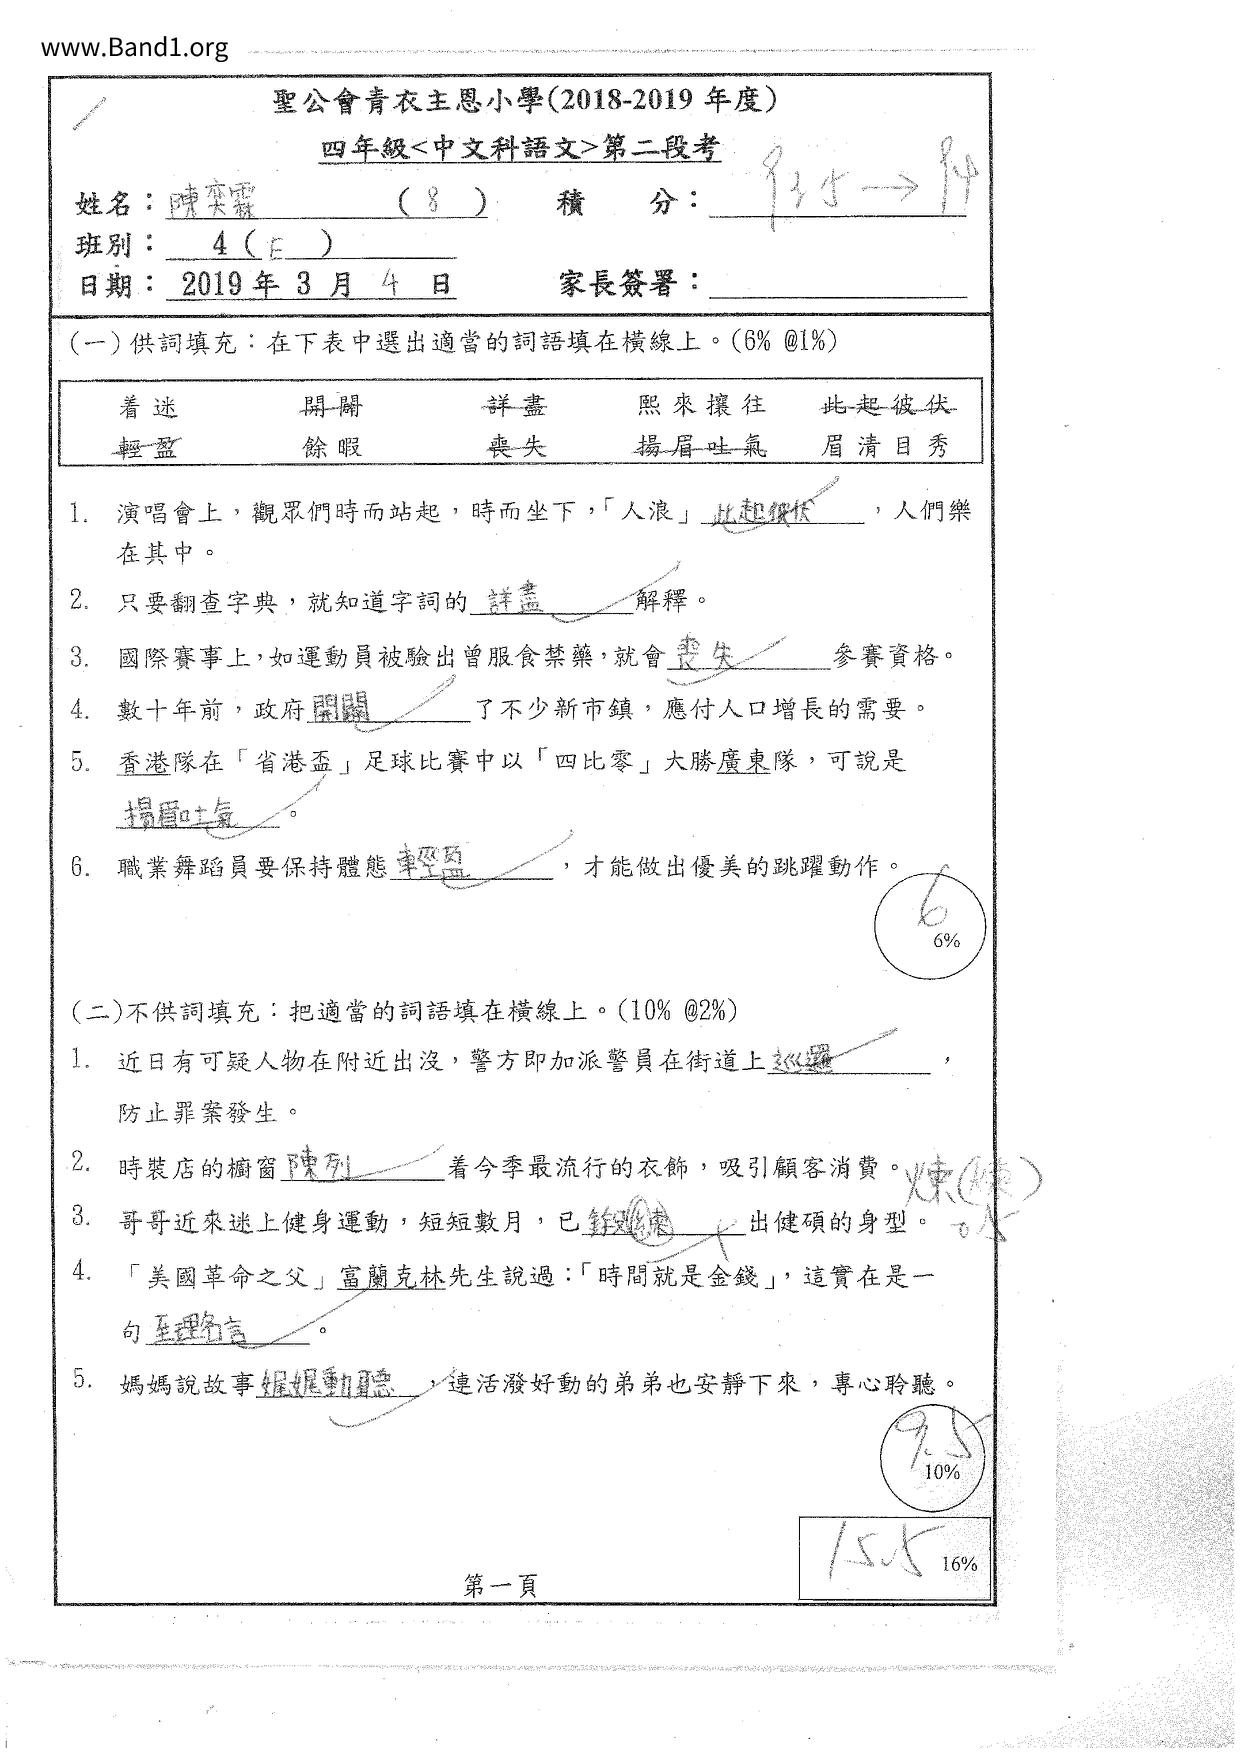 www.Band1.org
聖公會青衣主恩小學(2018-2019 年度)
四年級<中文科語文>第二段考
姓名：陳奕霖 ( 8 ) 積 分：93.5 → 94
班別： 4 ( E )
日期： 2019 年 3 月 4 日 家長簽署：
(一) 供詞填充：在下表中選出適當的詞語填在橫線上。(6% @1%)
着迷 開闢 詳盡 熙來攘往 此起彼伏
輕盈 餘暇 喪失 揚眉吐氣 眉清目秀
1. 演唱會上，觀眾們時而站起，時而坐下，「人浪」此起彼伏，人們樂
在其中。
2. 只要翻查字典，就知道字詞的詳盡解釋。
3. 國際賽事上，如運動員被驗出曾服食禁藥，就會喪失參賽資格。
4. 數十年前，政府開闢了不少新市鎮，應付人口增長的需要。
5. 香港隊在「省港盃」足球比賽中以「四比零」大勝廣東隊，可說是
揚眉吐氣。
6. 職業舞蹈員要保持體態輕盈，才能做出優美的跳躍動作。
6
6%
(二)不供詞填充：把適當的詞語填在橫線上。(10% @2%)
1. 近日有可疑人物在附近出沒，警方即加派警員在街道上巡邏，
防止罪案發生。
2. 時裝店的櫥窗陳列着今季最流行的衣飾，吸引顧客消費。
煉(鍊)
3. 哥哥近來迷上健身運動，短短數月，已鍛練出健碩的身型。
0.5
4. 「美國革命之父」富蘭克林先生說過：「時間就是金錢」，這實在是一
句至理名言。
5. 媽媽說故事娓娓動聽，連活潑好動的弟弟也安靜下來，專心聆聽。
9.5
10%
15.5 16%
第一頁